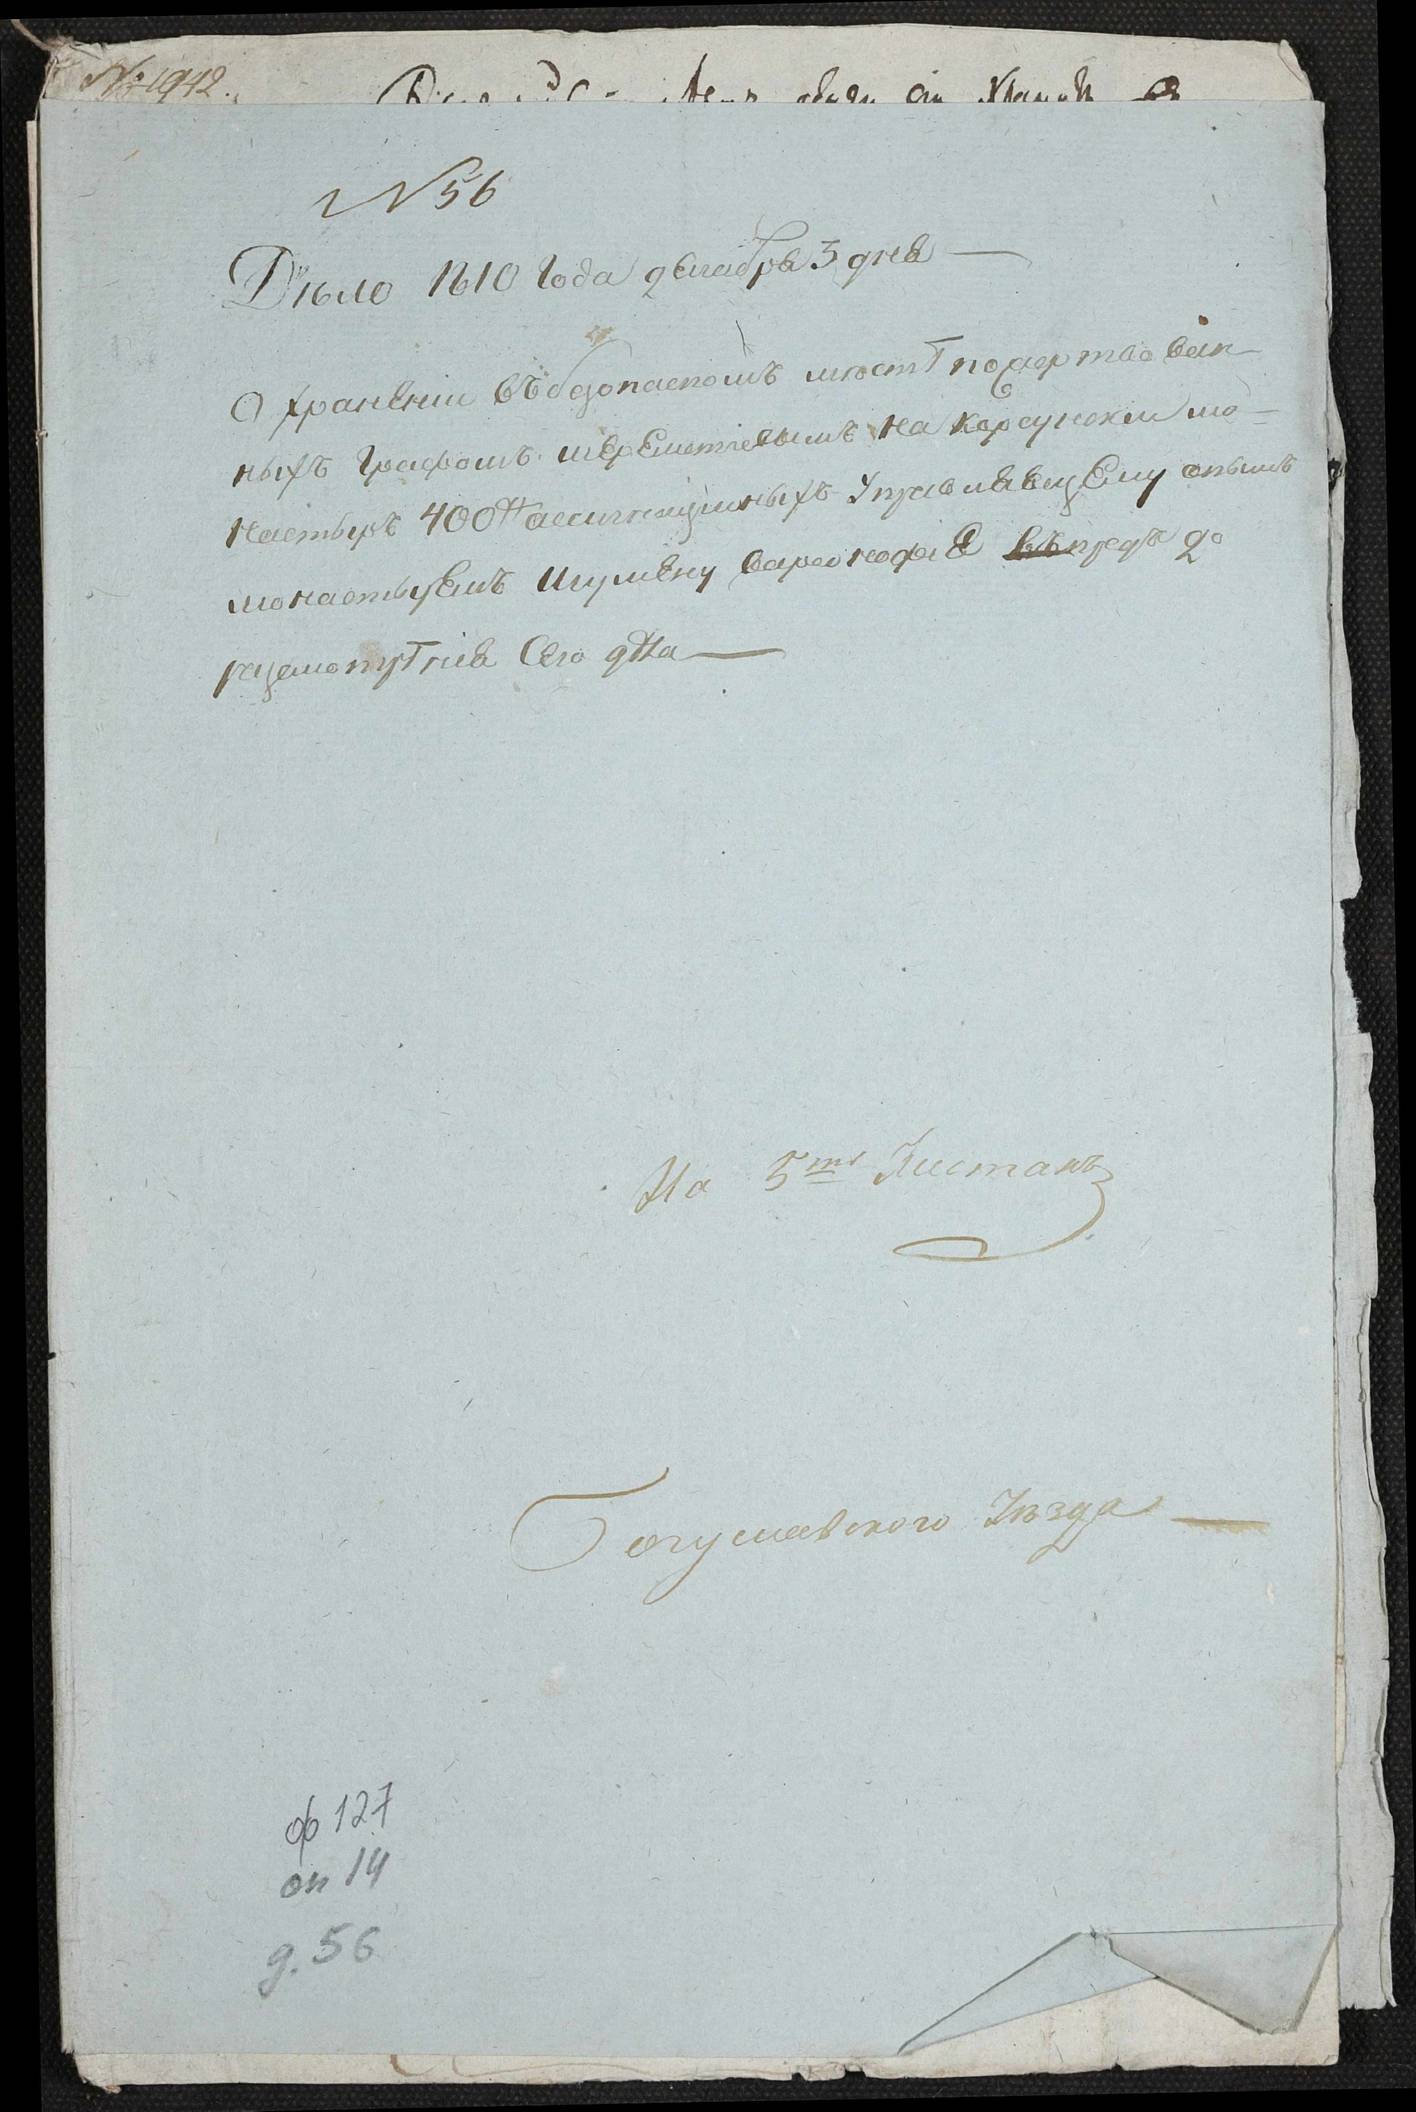 № 1942.
№ 56
Дѣло 1810 года декабря 3 дня —
О храненіи въ безопасномъ мѣстѣ пожертвован-
ныхъ графомъ шереметевымъ на корсунскій мо-
настырь 400 ассигнаційныхъ Управляющему онымъ
монастыремъ Игумену варсонофію впредъ до
разсмотрѣнія Сего дѣла —
На 5ти Листахъ
Богуславского Уѣзда —
ф 127
оп 14
д. 56